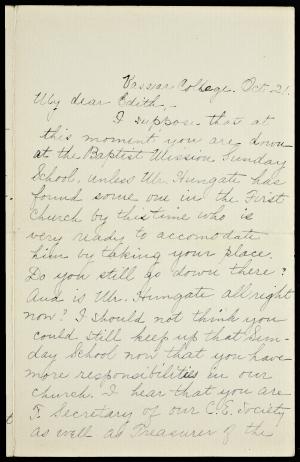 Vassar College. Oct. 21.
My dear Edith,-
I suppose that at
this moment you are down
at the Baptist Mission Sunday
School, unless Mr. Hungate has
found some one in the First
Church by this time who is
very ready to accomodate
him by taking your place.
Do you still go down there?
And is Mr. Hungate all right
now? I should not think you
could still keep up that Sun-
day School now that you have
more responsibilities in our
church. I hear that you are
Secretary of our C. E. Society
as well as Treasurer of the